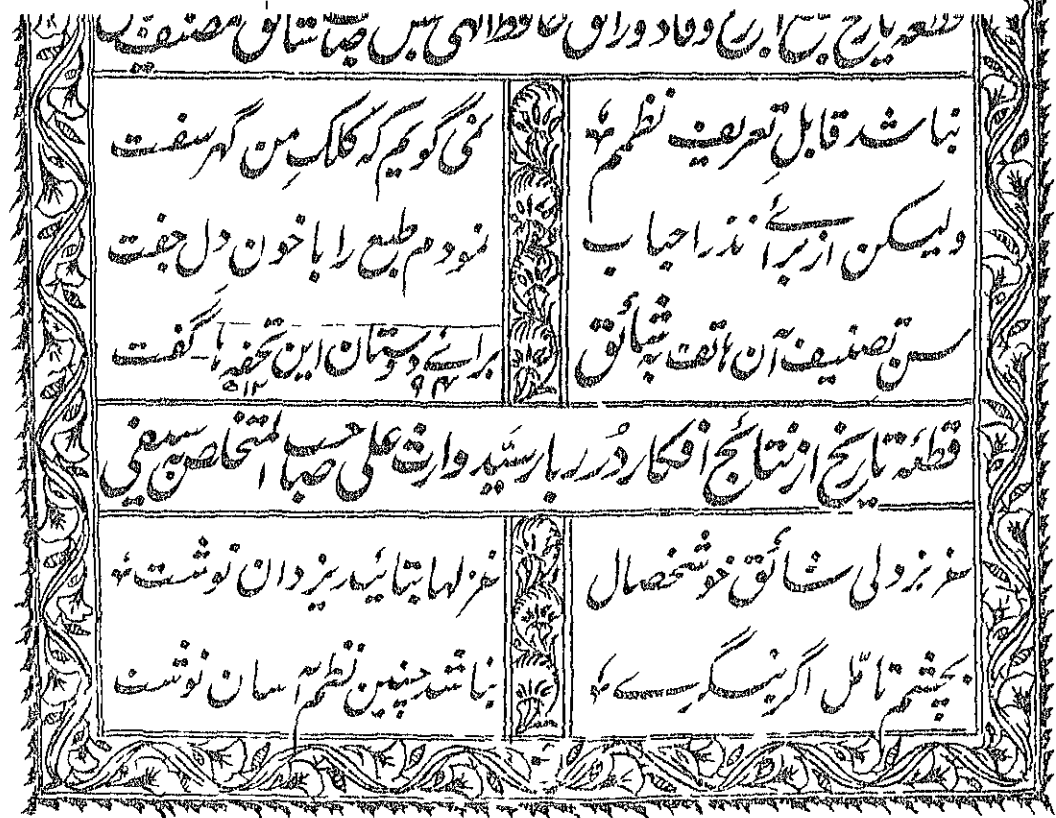 قطعه تاریخ طبع وقاد و حافظ الهی بخش صاحب شائق مصنف
نباشد قابلِ تعریف نظمم
نمی گویم که کلکِ من گهر سفت
ولیکن از برائے نذر احباب
نمودم طبع را با خون دل جفت
سن تصنیف آن هاتف به شائق
برائے دوستان این تحفه ها گفت
قطعه تاریخ از نتائج افکار دُرر بار سیّد وارث علی صاحب المتخلص به سیفی
عزیز دلی شائق خوشخصال
غزلها بتائید یزدان نوشت
بچشم تامّل اگر بنگرے
نباشد چنین نظم آسان نوشت